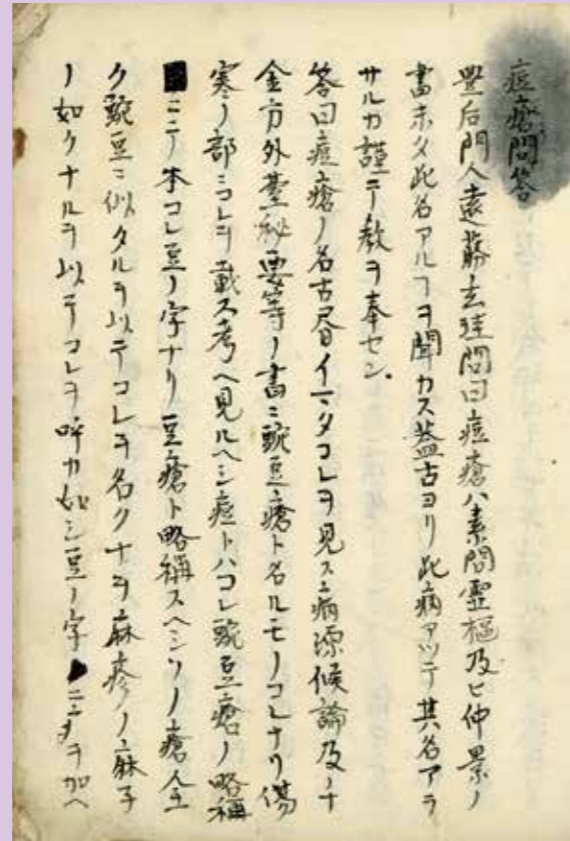 痘瘡問答
豊后門人遠藤玄珪問曰痘瘡ハ素問霊枢及ヒ仲景ノ
書未タ此名アルヿヲ聞カス蓋古ヨリ此病アツテ其名アラ
サルカ謹テ教ヲ奉セン
答曰痘瘡ノ名古昔イマタコレヲ見ス病源候論及千
金方外臺秘要等ノ書ニ豌豆瘡ト名ルモノコレナリ傷
寒ノ部ニコレヲ載ス考ヘ見ルヘシ痘トハコレ豌豆瘡ノ略稱
ニ乄本コレ豆ノ字ナリ豆瘡ト略稱スヘシソノ瘡全
ク豌豆ニ似タルヲ以テコレヲ名ク十ヲ麻疹ノ麻子
ノ如クナルヲ以テコレヲ呼カ如シ豆ノ字ニ疒ヲ加ヘ